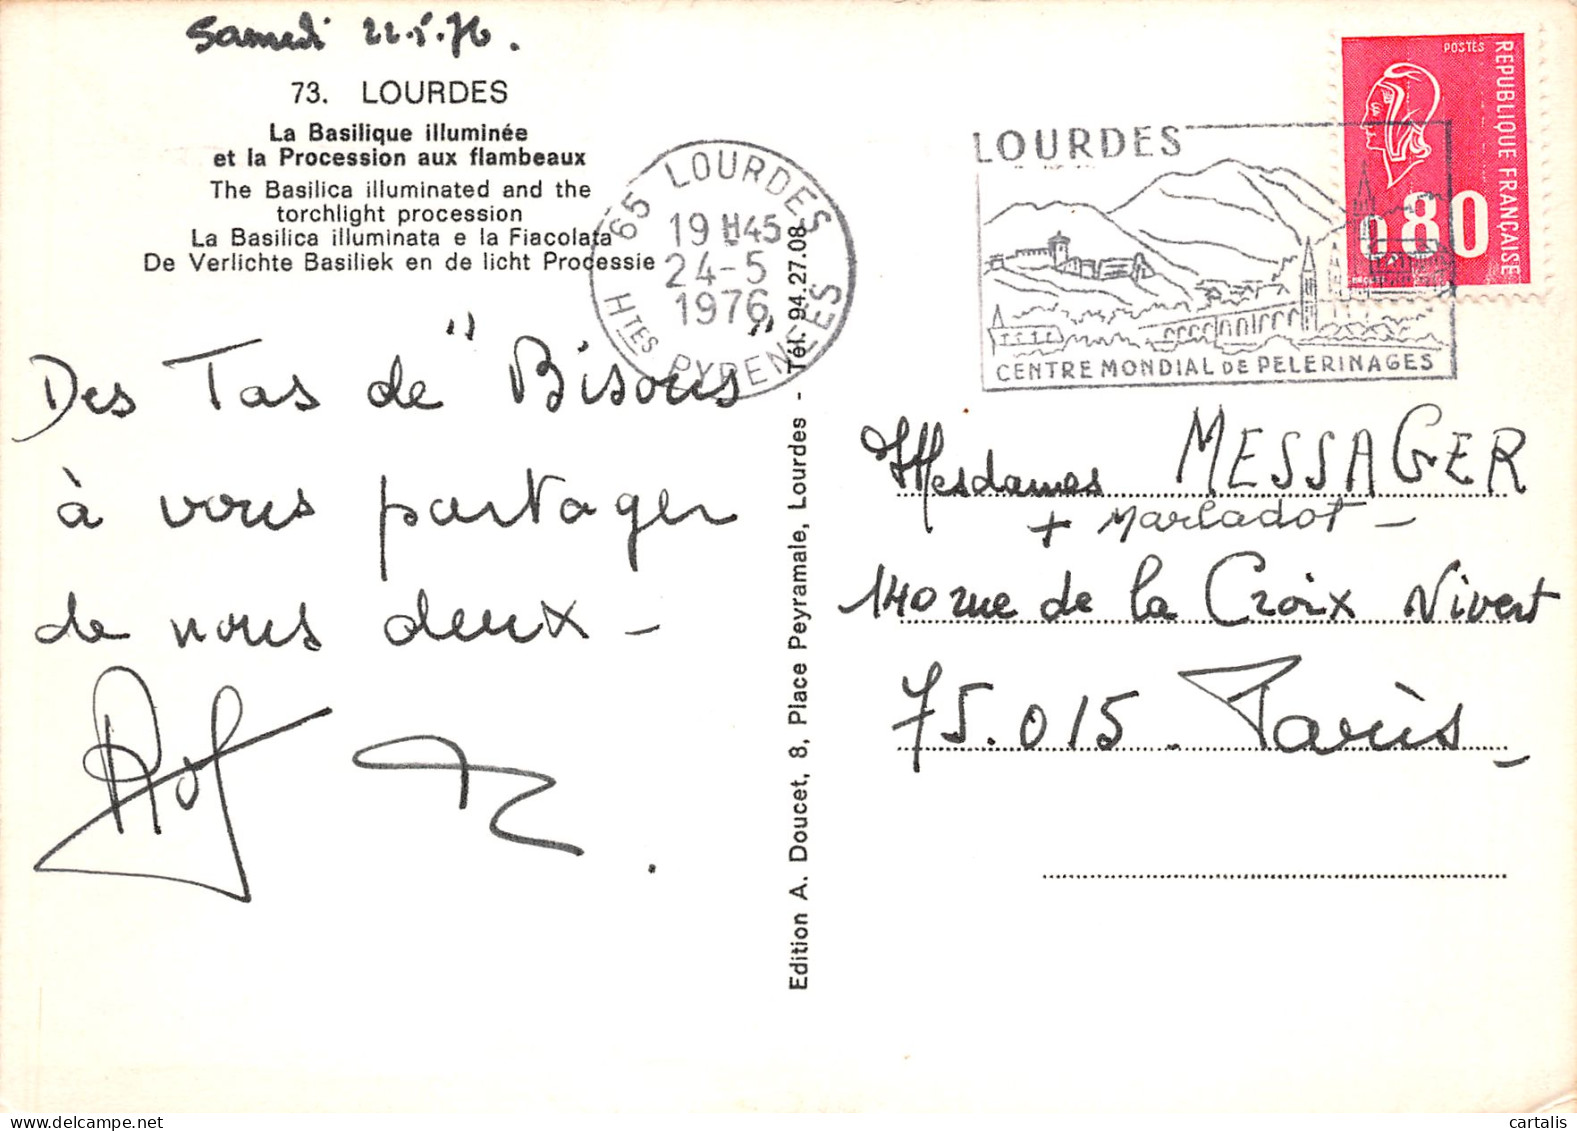 Samedi 22.5.76.
73. LOURDES
La Basilique illuminée
et la Procession aux flambeaux
The Basilica illuminated and the
torchlight procession
La Basilica illuminata e la Fiacolata
De Verlichte Basiliek en de licht Processie
Des Tas de "Bisous"
à vous partager
de nous deux -
65 LOURDES
19 H45
24-5
1976
HTES PYRENEES
Edition A. Doucet, 8, Place Peyramale, Lourdes - Tél. 94.27.08
LOURDES
CENTRE MONDIAL DE PELERINAGES
POSTES
REPUBLIQUE FRANÇAISE
0,80
Mesdames MESSAGER
+ Marladot -
140 rue de la Croix Nivert
75.015. Paris -
cartalis
www.delcampe.net